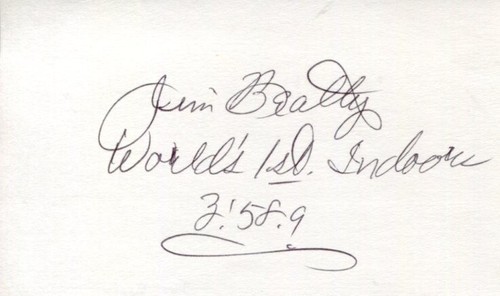 Jim Beatty
World's 1st. Indoors
3:58.9